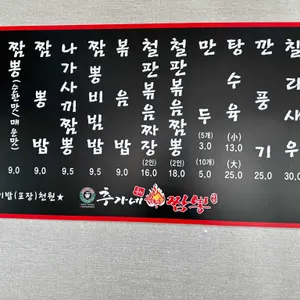 짬뽕(순한맛/매운맛) 9.0
짬뽕밥 9.0
나가사끼짬뽕 9.5
짬뽕비빔밥 9.5
볶음밥 9.0
철판볶음짜장 (2인) 16.0
철판볶음짬뽕 (2인) 18.0
만두 (5개) 3.0 (10개) 5.0
탕수육 (小) 13.0 (大) 25.0
깐풍기 25.0
칠리새우 30.0
기밥(포장)천원★
총가네 짬뽕